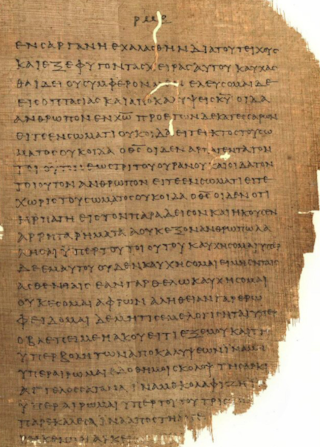 ενσαργανηεχαλασθηνδιατουτειχους
καιεξεφυγοντασχειρασαυτουκαυχας
θαιδειουσυμφερονμενελευσομαιδε
εισοπτασιασκαιαποκαλυψεισκυοιδα
ανθρωπονενχωπροετωνδεκατεσσαρων
ειτεενσωματιουκοιδαειτεεκτοστουσω
ματοσουκοιδαοθσοιδεναρπαγεντατον
τοιουτονεωστριτουουρανουκαιοιδατον
τοιουτονανθρωπονειτεενσωματιειτε
χωριστουσωματοσουκοιδαοθσοιδενοτι
ηρπαγηειστονπαραδεισονκαιηκουσεν
αρρηταρηματααουκεξονανθρωπωλα
λησαιυπερτουτοιουτουκαυχησομαιυπερ
δεεμαυτουουδενκαυχησομαιειμηενταις
ασθενιαισεανγαρθελωκαυχησομαι
ουκεσομαιαφρωναληθειανγαρερω
φειδομαιδεμητισεμελογισηταιυπερ
οβλεπειμεηακουειτιεξεμουκαιτη
υπερβολητωναποκαλυψεωνιναμη
υπεραιρωμαιεδοθημοισκολοψτησαρκι
αγγελοσσαταναιναμεκολαφιζη
υπεραιρωμαιυπερτουτουτρις
παρεκαλεσαινααποστη